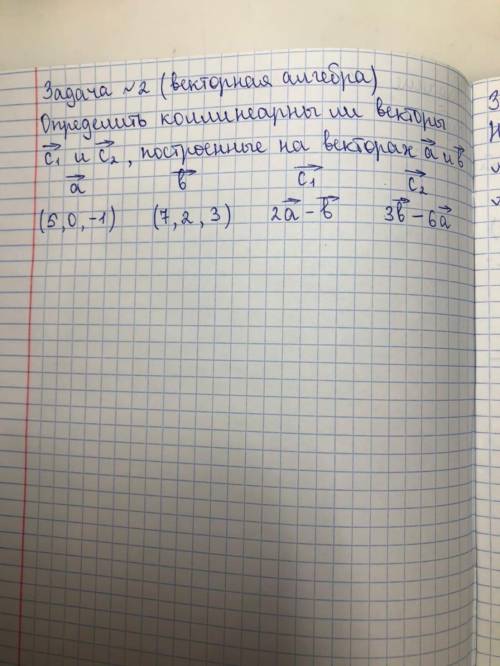 Задача ~2 (векторная алгебра)
Определить коллинеарны ли векторы
c₁ и c₂, построенные на векторах a и b
a b c₁ c₂
(5,0,-1) (7,2,3) 2a-b 3b-6a